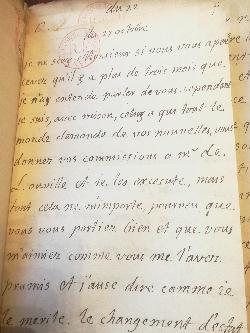 du 22
du 27 octobre
je ne scay Monsieur si vous vous apercevez
qu'il y a plus de trois mois que
je n'ay entendu parler de vous, cependant
je suis, avec raison, celuy a qui tout le
monde demande de vos nouvelles, vous
donnez vos commissions a mr de
Louville et je les execute, mais
tout cela ne m'importe, pourveu que
vous vous portiez bien et que vous
m'aimiez comme vous me l'avez
promis et j'ause dire comme je
le merite. le changement d'estat